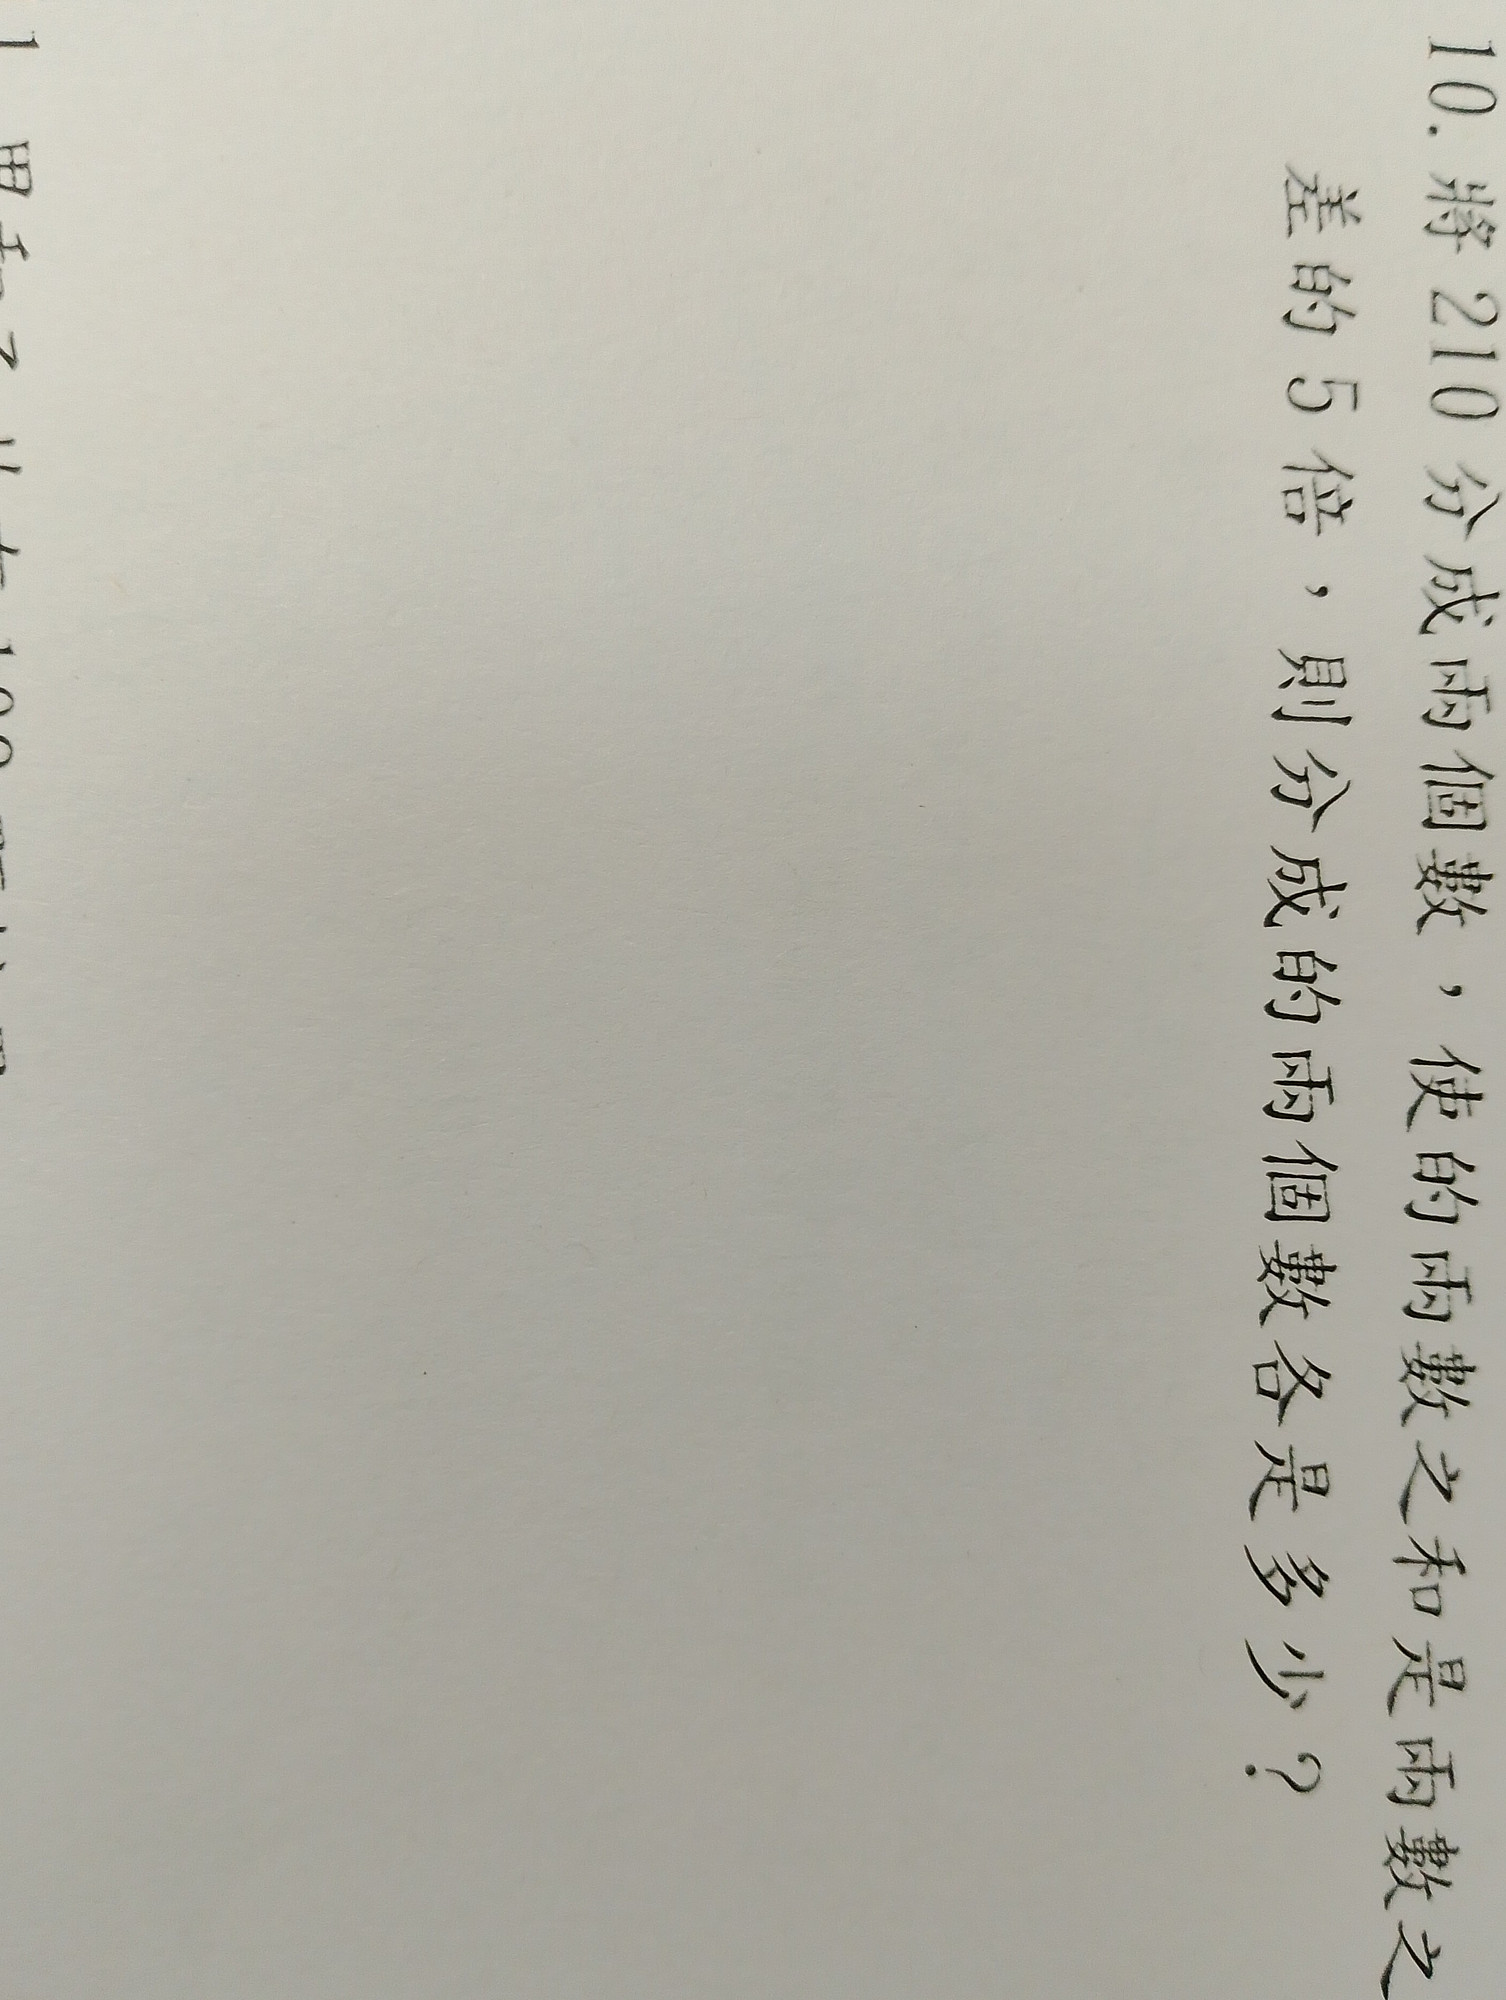 10. 將 210 分成兩個數，使的兩數之和是兩數之
差的 5 倍，則分成的兩個數各是多少？